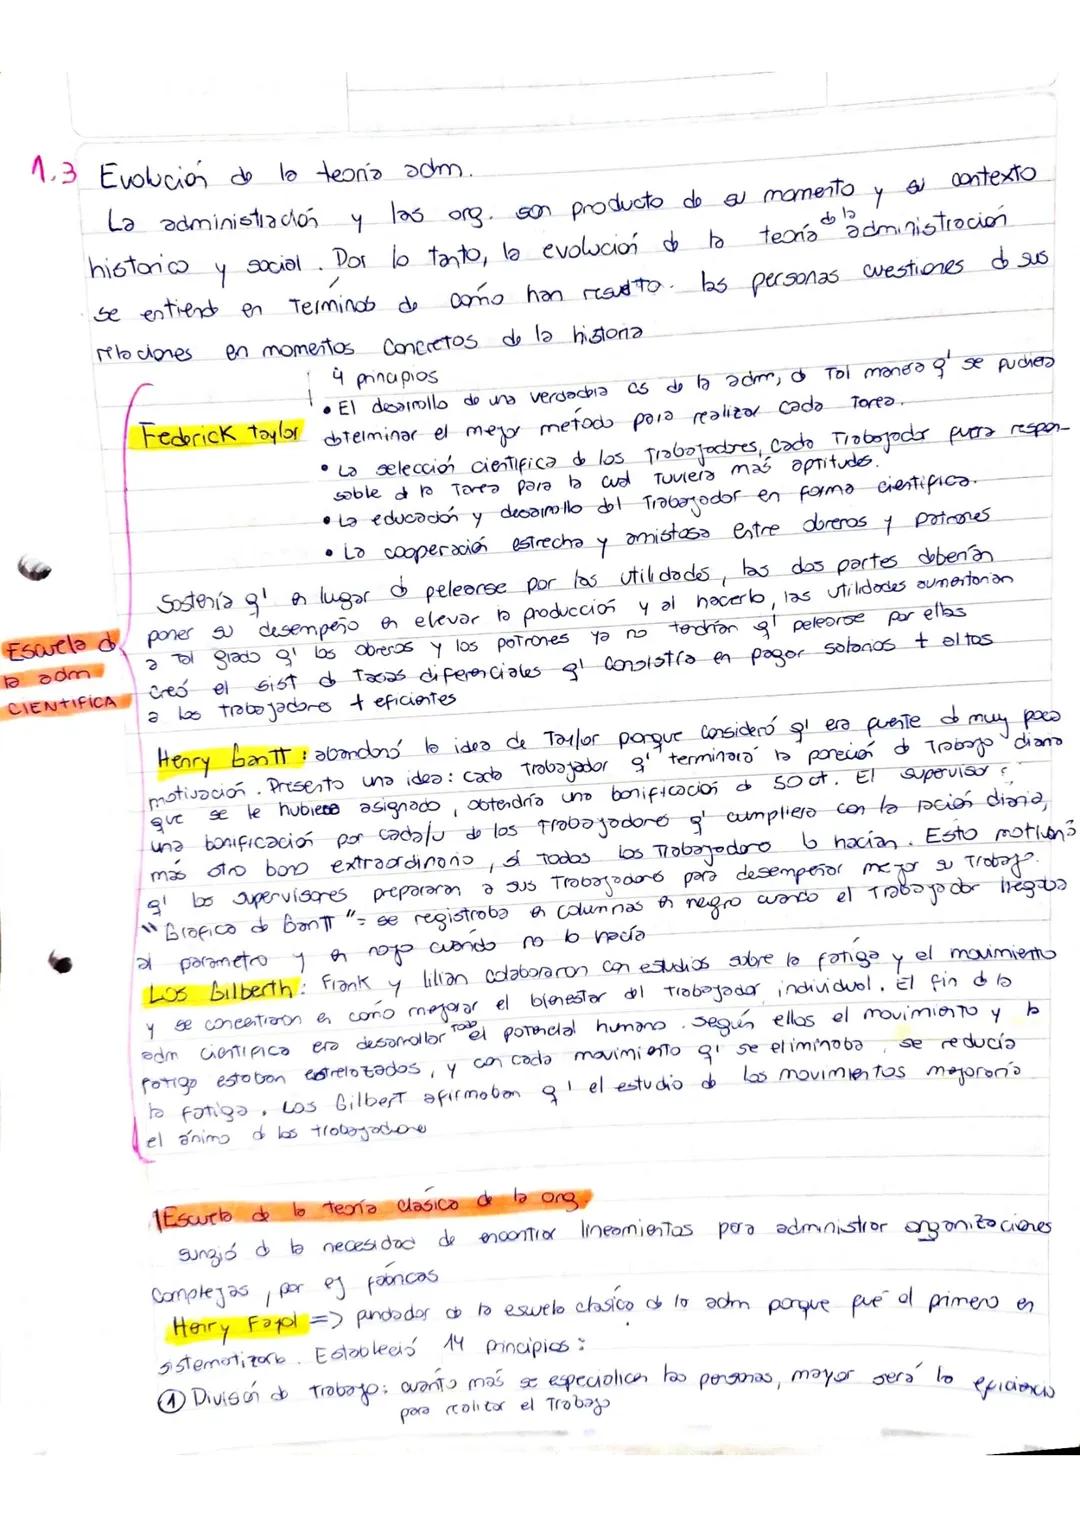 1.3 Evolución de la teoría adm.
La administración y las org. son producto de su momento y su contexto
historico y social. Por lo tanto, la evolución d la teoría de la administración
se entiend en Terminos de como han resuelto las personas cuestiones d sus
relaciones en momentos concretos de la historia
4 principios
• El desarrollo de una verdadera cs de la adm, d Tal manera q' se pudiera
Federick taylor
determinar el mejor método para realizar cada Tarea.
• La selección científica d los Trabajadores, cada Trabajador fuera respon-
sable d la Tarea para la cual Tuviera más aptitudes.
• La educación y desarrollo del Trabajador en forma científica.
• La cooperación estrecha y amistosa entre obreros y patrones
Sostenía q' en lugar d pelearse por las utilidades, las dos partes deberían
poner su desempeño en elevar la producción y al hacerlo, las utilidades aumentarían
a Tal grado q' los obreros y los patrones ya no tendrían q' pelearse por ellas
creó el sist d Tasas diferenciales q' consistía en pagar salarios + altos
a los trabajadores + eficientes
Escuela d
la adm
CIENTIFICA
Henry Gantt: abandonó la idea de Taylor porque consideró q' era fuente d muy poca
motivación. Presento una idea: cada Trabajador q' terminara la porción d Trabajo diario
que se le hubiese asignado, obtendría una bonificación d 50 ct. El supervisor
una bonificación por cada/u de los trabajadores q' cumpliera con la ración diaria,
más otro bono extraordinario, si todos los Trabajadores lo hacían. Esto motivó
q' los supervisores prepararan a sus Trabajadores para desempeñar mejor su Trabajo.
"Grafico d Gantt" = se registraba en columnas en negro cuando el Trabajador llegaba
al parametro y en rojo cuando no lo hacía
LOS Gilberth: Frank y lilian colaboraron con estudios sobre la fatiga y el movimiento
y se concentraron en como mejorar el bienestar del trabajador individual. El fin d la
adm científica era desarrollar todo el potencial humano. Según ellos el movimiento y la
fatiga estaban entrelazados, y con cada movimiento q' se eliminaba, se reducía
la fatiga. Los Gilbert afirmaban q' el estudio d los movimientos mejoraría
el ánimo d los trabajadores
1 Escuela de la teoría clásica de la org.
surgió d la necesidad de encontrar lineamientos para administrar organizaciones
complejas, por ej fabricas
Henry Fayol => fundador de la escuela clasica d la adm porque fue el primero en
sistematizarla. Estableció 14 principios:
① División de trabajo: cuanto más se especialicen las personas, mayor será la eficiencia
para realizar el Trabajo